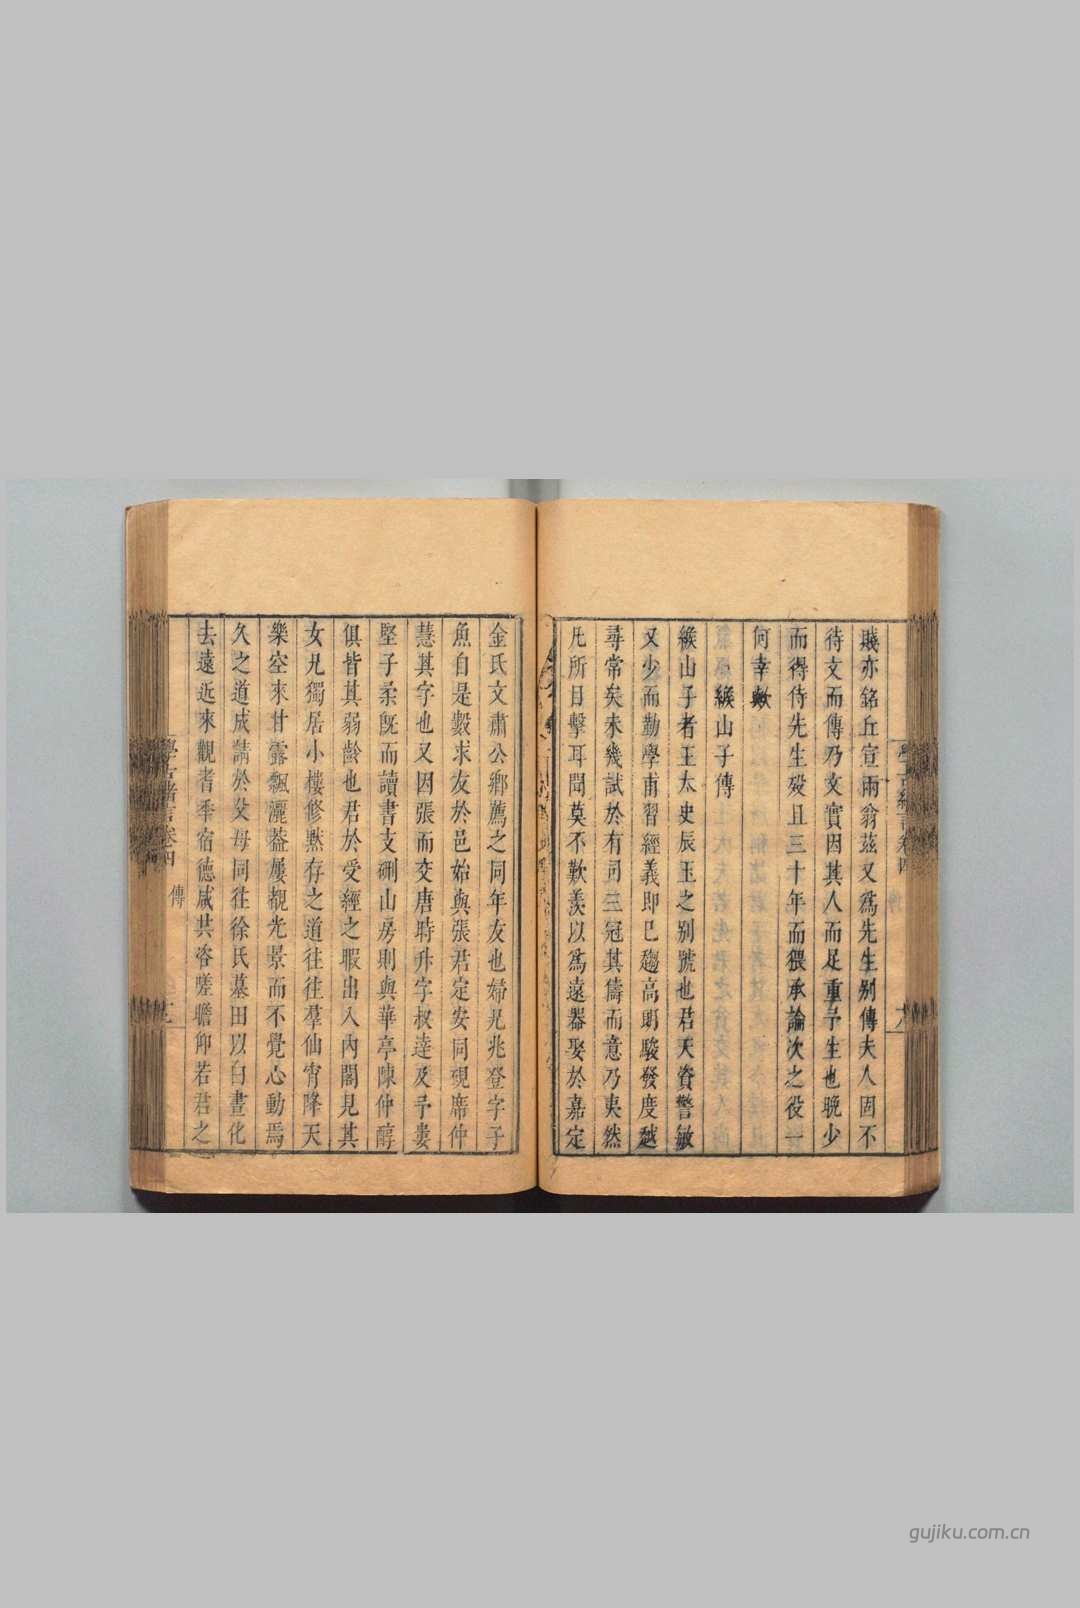 賤亦銘丘宣兩翁茲又爲先生别傳夫人固不
待文而傳乃文實因其人而足重予生也晚少
而得侍先生歿且三十年而猥承論次之役一
何幸歟
緱山子傳
緱山子者王太史辰玉之别號也君天資警敏
又少而勤學甫習經義即已趨高朗駿發度越
尋常矣未幾試於有司三冠其儔而意乃夷然
凡所目擊耳聞莫不歎羨以爲遠器娶於嘉定
學古緒言卷四
金氏文肅公鄉薦之同年友也婦兄兆登字子
魚自是數求友於邑始與張君定安同硯席仲
慧其字也又因張而交唐時升字叔達及予婁
堅子柔既而讀書支硎山房則與華亭陳仲醇
俱皆其弱齡也君於受經之暇出入內閣見其
女兄獨居小樓修默存之道往往羣仙宵降天
樂空來甘露飄灑葢屢覩光景而不覺心動焉
久之道成請於父母同往徐氏墓田以白晝化
去遠近來觀者耆宿德咸共咨嗟瞻仰若君之
學古緒言卷四
傳
gujiku.com.cn